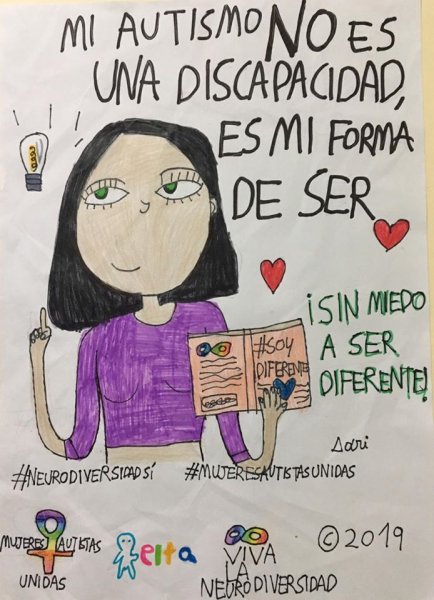 MI AUTISMO NO ES
UNA DISCAPACIDAD,
ES MI FORMA
DE SER
¡SIN MIEDO
A SER
DIFERENTE!
#SOY
DIFERENTE
Sari
#NEURODIVERSIDADSÍ
#MUJERESAUTISTASUNIDAS
MUJERES AUTISTAS
UNIDAS
elta
VIVA
LA
NEURODIVERSIDAD
©2019